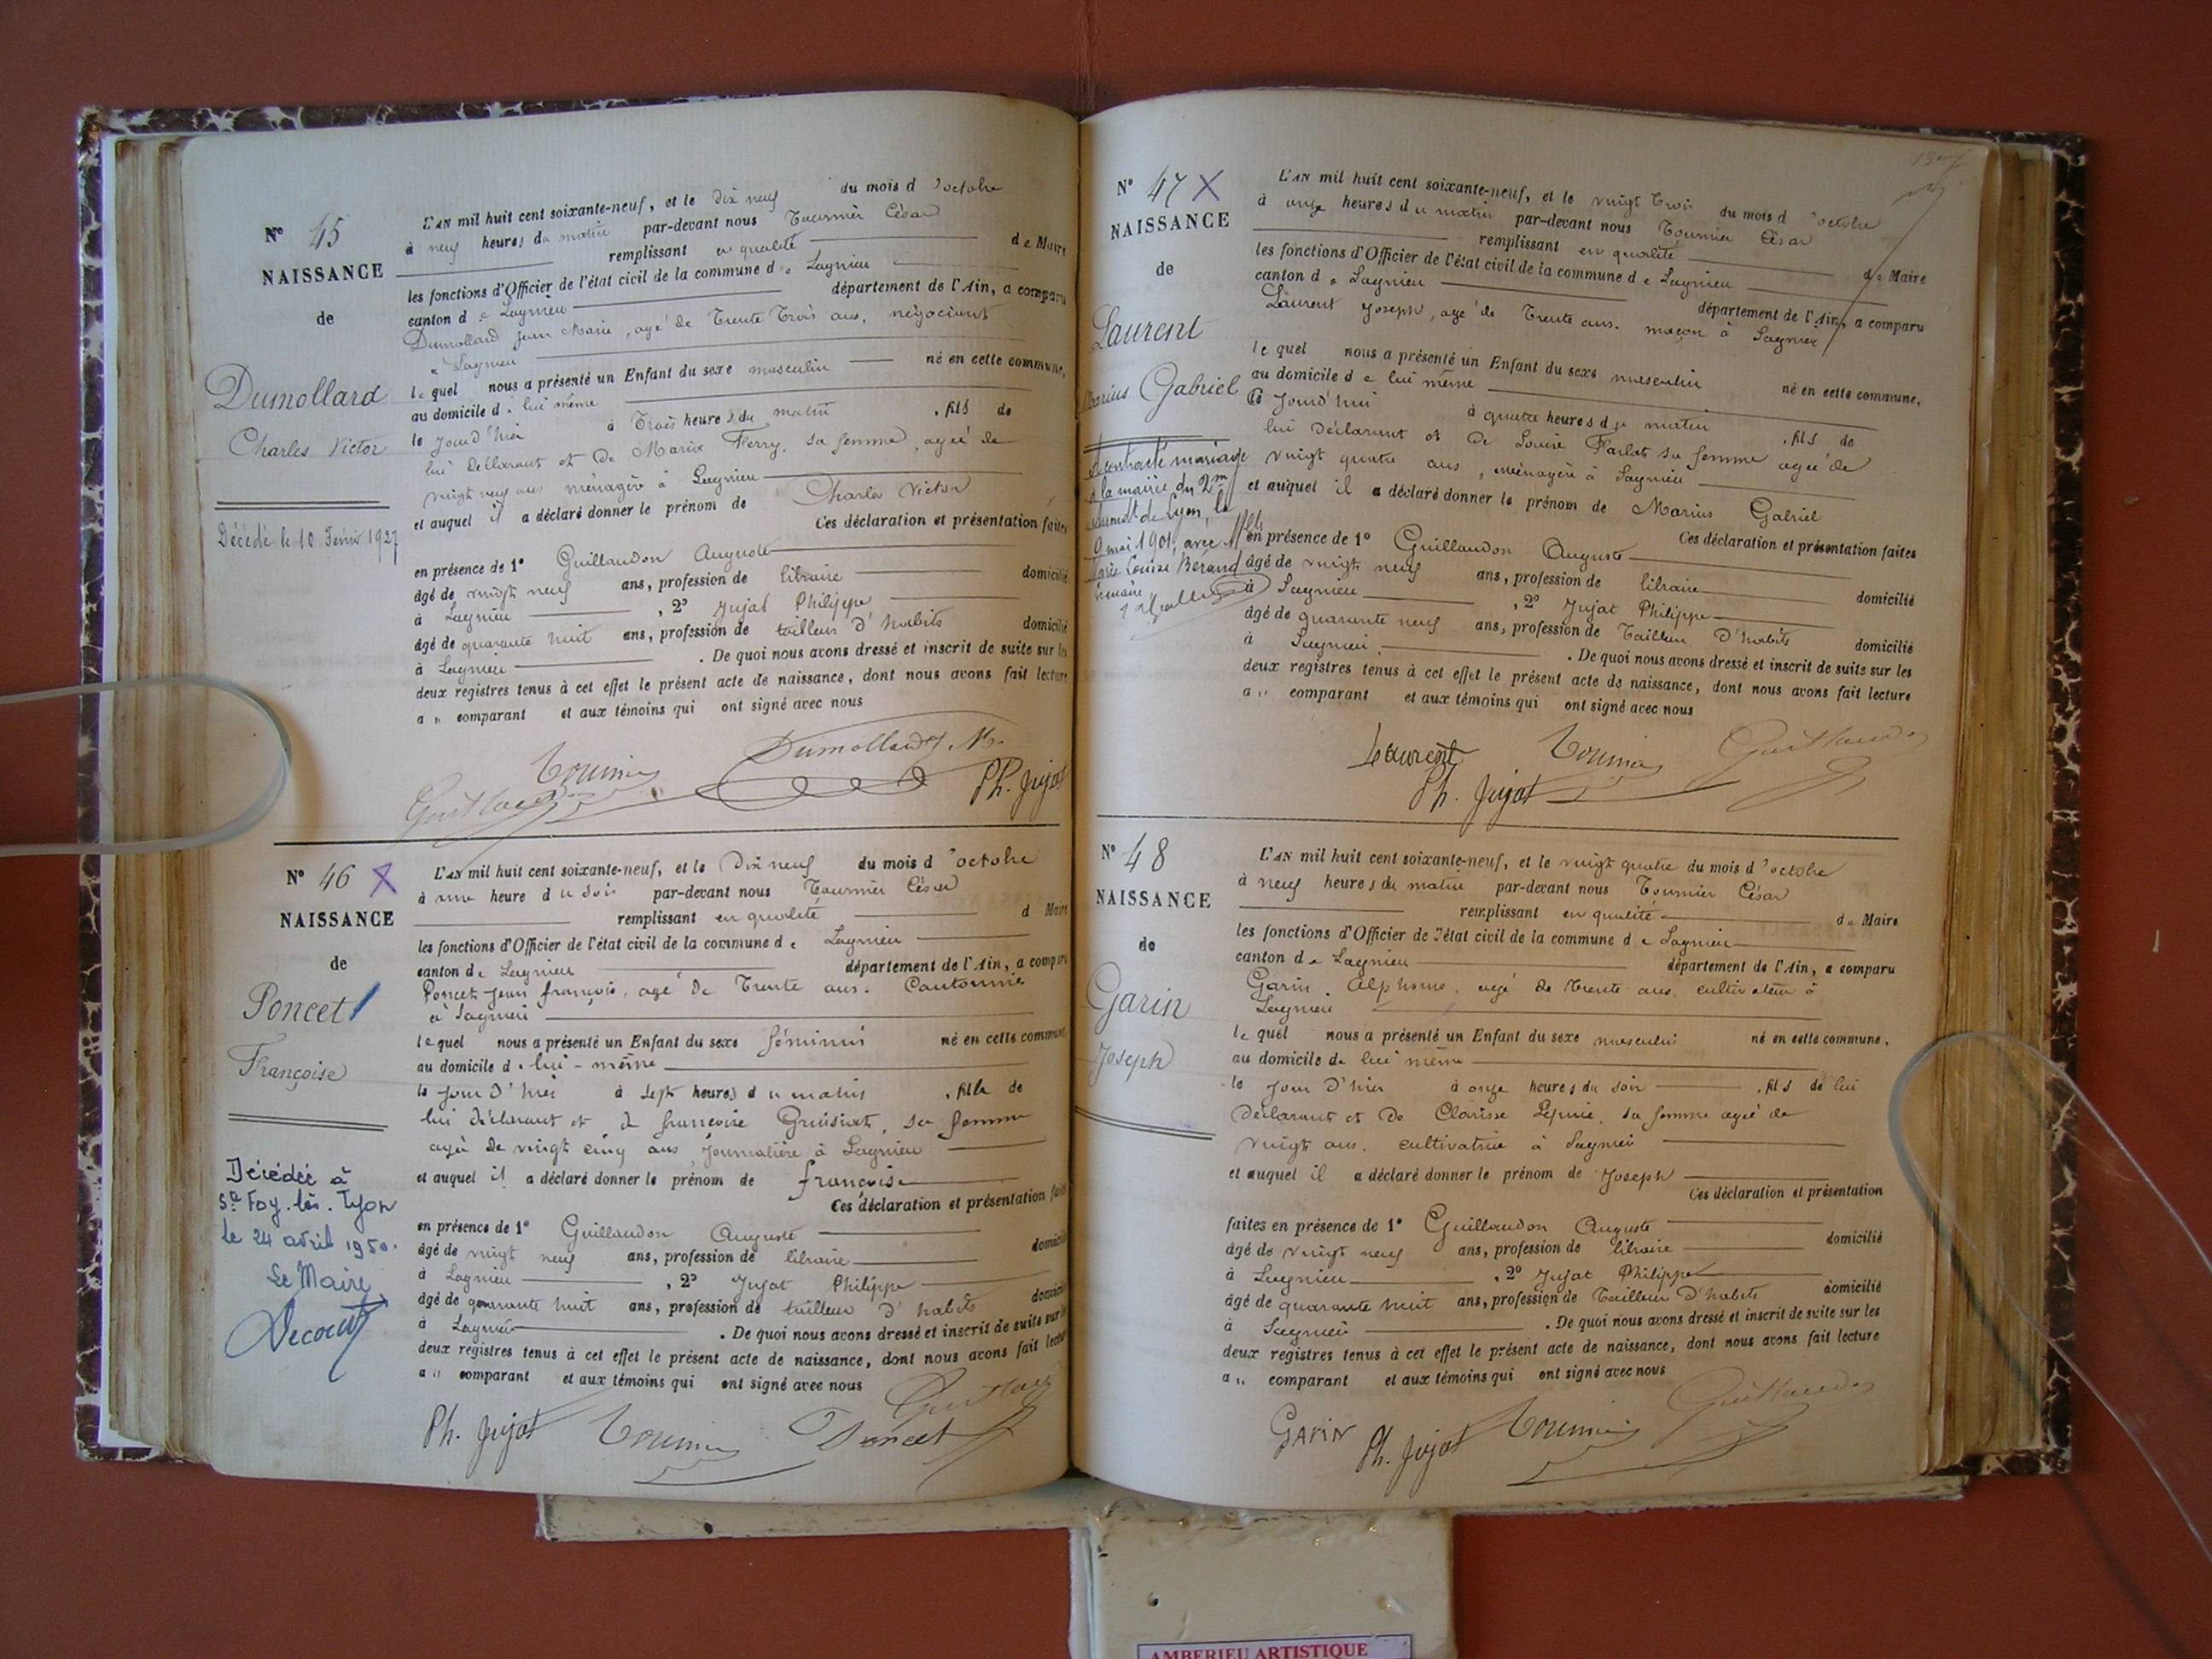 N° 45
NAISSANCE
de
Dumollard
Charles Victor
Décédé le 10 Février 1927
L'AN mil huit cent soixante-neuf, et le Dix neuf du mois d'octobre
à neuf heures du matin par-devant nous Tournier César
remplissant en qualité de Maire
les fonctions d'Officier de l'état civil de la commune de Lagnieu
canton de Lagnieu département de l'Ain, a comparu
Dumollard Jean Marie, agé de Trente Trois ans, négociant
a Lagnieu
le quel nous a présenté un Enfant du sexe masculin né en cette commune,
au domicile de lui même
le Jour d'hier à Trois heures du matin , fils de
lui déclarant et de Marie Ferry, sa femme, agée de
vingt neuf ans ménagère à Lagnieu
et auquel il a déclaré donner le prénom de Charles Victor
Ces déclaration et présentation faites
en présence de 1° Guillaudon Auguste
âgé de vingt neuf ans, profession de libraire domicilié
à Lagnieu , 2° Jujat Philippe
âgé de quarante huit ans, profession de tailleur d'habits domicilié
à Lagnieu . De quoi nous avons dressé et inscrit de suite sur les
deux registres tenus à cet effet le présent acte de naissance, dont nous avons fait lecture
au comparant et aux témoins qui ont signé avec nous
Tournier Dumollard J. M.
Guillaudon Ph. Jujat
N° 46 X
NAISSANCE
de
Poncet
Françoise
Décédée à
Ste Foy-lès-Lyon
le 24 avril 1950.
Le Maire
L'AN mil huit cent soixante-neuf, et le Dix neuf du mois d'octobre
à une heure du soir par-devant nous Tournier César
remplissant en qualité d Maire
les fonctions d'Officier de l'état civil de la commune de Lagnieu
canton de Lagnieu département de l'Ain, a comparu
Poncet Jean françois, agé de Trente ans. Cantonnier
à Lagnieu
le quel nous a présenté un Enfant du sexe féminin né en cette commune,
au domicile de lui-même
le Jour d'hier à sept heures du matin , fille de
lui déclarant et de françoise , sa femme
agée de vingt cinq ans Journalière à Lagnieu
et auquel il a déclaré donner le prénom de françoise
Ces déclaration et présentation faites
en présence de 1° Guillaudon Auguste
âgé de vingt neuf ans, profession de libraire domicilié
à Lagnieu , 2° Jujat Philippe
âgé de quarante huit ans, profession de tailleur d'habits domicilié
à Lagnieu . De quoi nous avons dressé et inscrit de suite sur les
deux registres tenus à cet effet le présent acte de naissance, dont nous avons fait lecture
au comparant et aux témoins qui ont signé avec nous
Guillaudon
Ph. Jujat Tournier Poncet
N° 47 X
NAISSANCE
de
Laurent
Marius Gabriel
a contracté mariage
à la mairie du 2me
arrondt de Lyon, le
9 mai 1901, avec Melle
Marie Louise Beraud
L'AN mil huit cent soixante-neuf, et le vingt Trois du mois d'octobre
à onze heures du matin par-devant nous Tournier César
remplissant en qualité de Maire
les fonctions d'Officier de l'état civil de la commune de Lagnieu
canton de Lagnieu département de l'Ain, a comparu
Laurent Joseph, agé de Trente ans. maçon à Lagnieu
le quel nous a présenté un Enfant du sexe masculin né en cette commune,
au domicile de lui même
ce Jourd'hui à quatre heures du matin , fils de
lui déclarant et de Louise Parlat sa femme agée de
vingt quatre ans, ménagère à Lagnieu
et auquel il a déclaré donner le prénom de Marius Gabriel
Ces déclaration et présentation faites
en présence de 1° Guillaudon Auguste
âgé de vingt neuf ans, profession de libraire domicilié
à Lagnieu , 2° Jujat Philippe
âgé de quarante neuf ans, profession de Tailleur D'habits domicilié
à Lagnieu . De quoi nous avons dressé et inscrit de suite sur les
deux registres tenus à cet effet le présent acte de naissance, dont nous avons fait lecture
au comparant et aux témoins qui ont signé avec nous
Laurent Tournier Guillaudon
Ph. Jujat
N° 48
NAISSANCE
de
Garin
Joseph
L'AN mil huit cent soixante-neuf, et le vingt quatre du mois d'octobre
à neuf heures du matin par-devant nous Tournier César
remplissant en qualité de Maire
les fonctions d'Officier de l'état civil de la commune de Lagnieu
canton de Lagnieu département de l'Ain, a comparu
Garin Alphonse, agé de Trente ans, cultivateur à
Lagnieu
le quel nous a présenté un Enfant du sexe masculin né en cette commune,
au domicile de lui même
le Jour d'hier à onze heures du soir , fils de lui
Déclarant et De Clarisse Lépine, sa femme agée de
vingt ans. cultivatrice à Lagnieu
et auquel il a déclaré donner le prénom de Joseph
Ces déclaration et présentation
faites en présence de 1° Guillaudon Auguste
âgé de vingt neuf ans, profession de libraire domicilié
à Lagnieu , 2° Jujat Philippe
âgé de quarante huit ans, profession de Tailleur D'habits domicilié
à Lagnieu . De quoi nous avons dressé et inscrit de suite sur les
deux registres tenus à cet effet le présent acte de naissance, dont nous avons fait lecture
au comparant et aux témoins qui ont signé avec nous
GARIN Ph. Jujat Tournier Guillaudon
AMBERIEU ARTISTIQUE